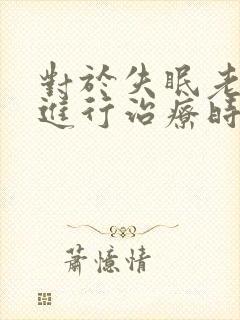 對於失眠老
進行治療時
蕭憶情